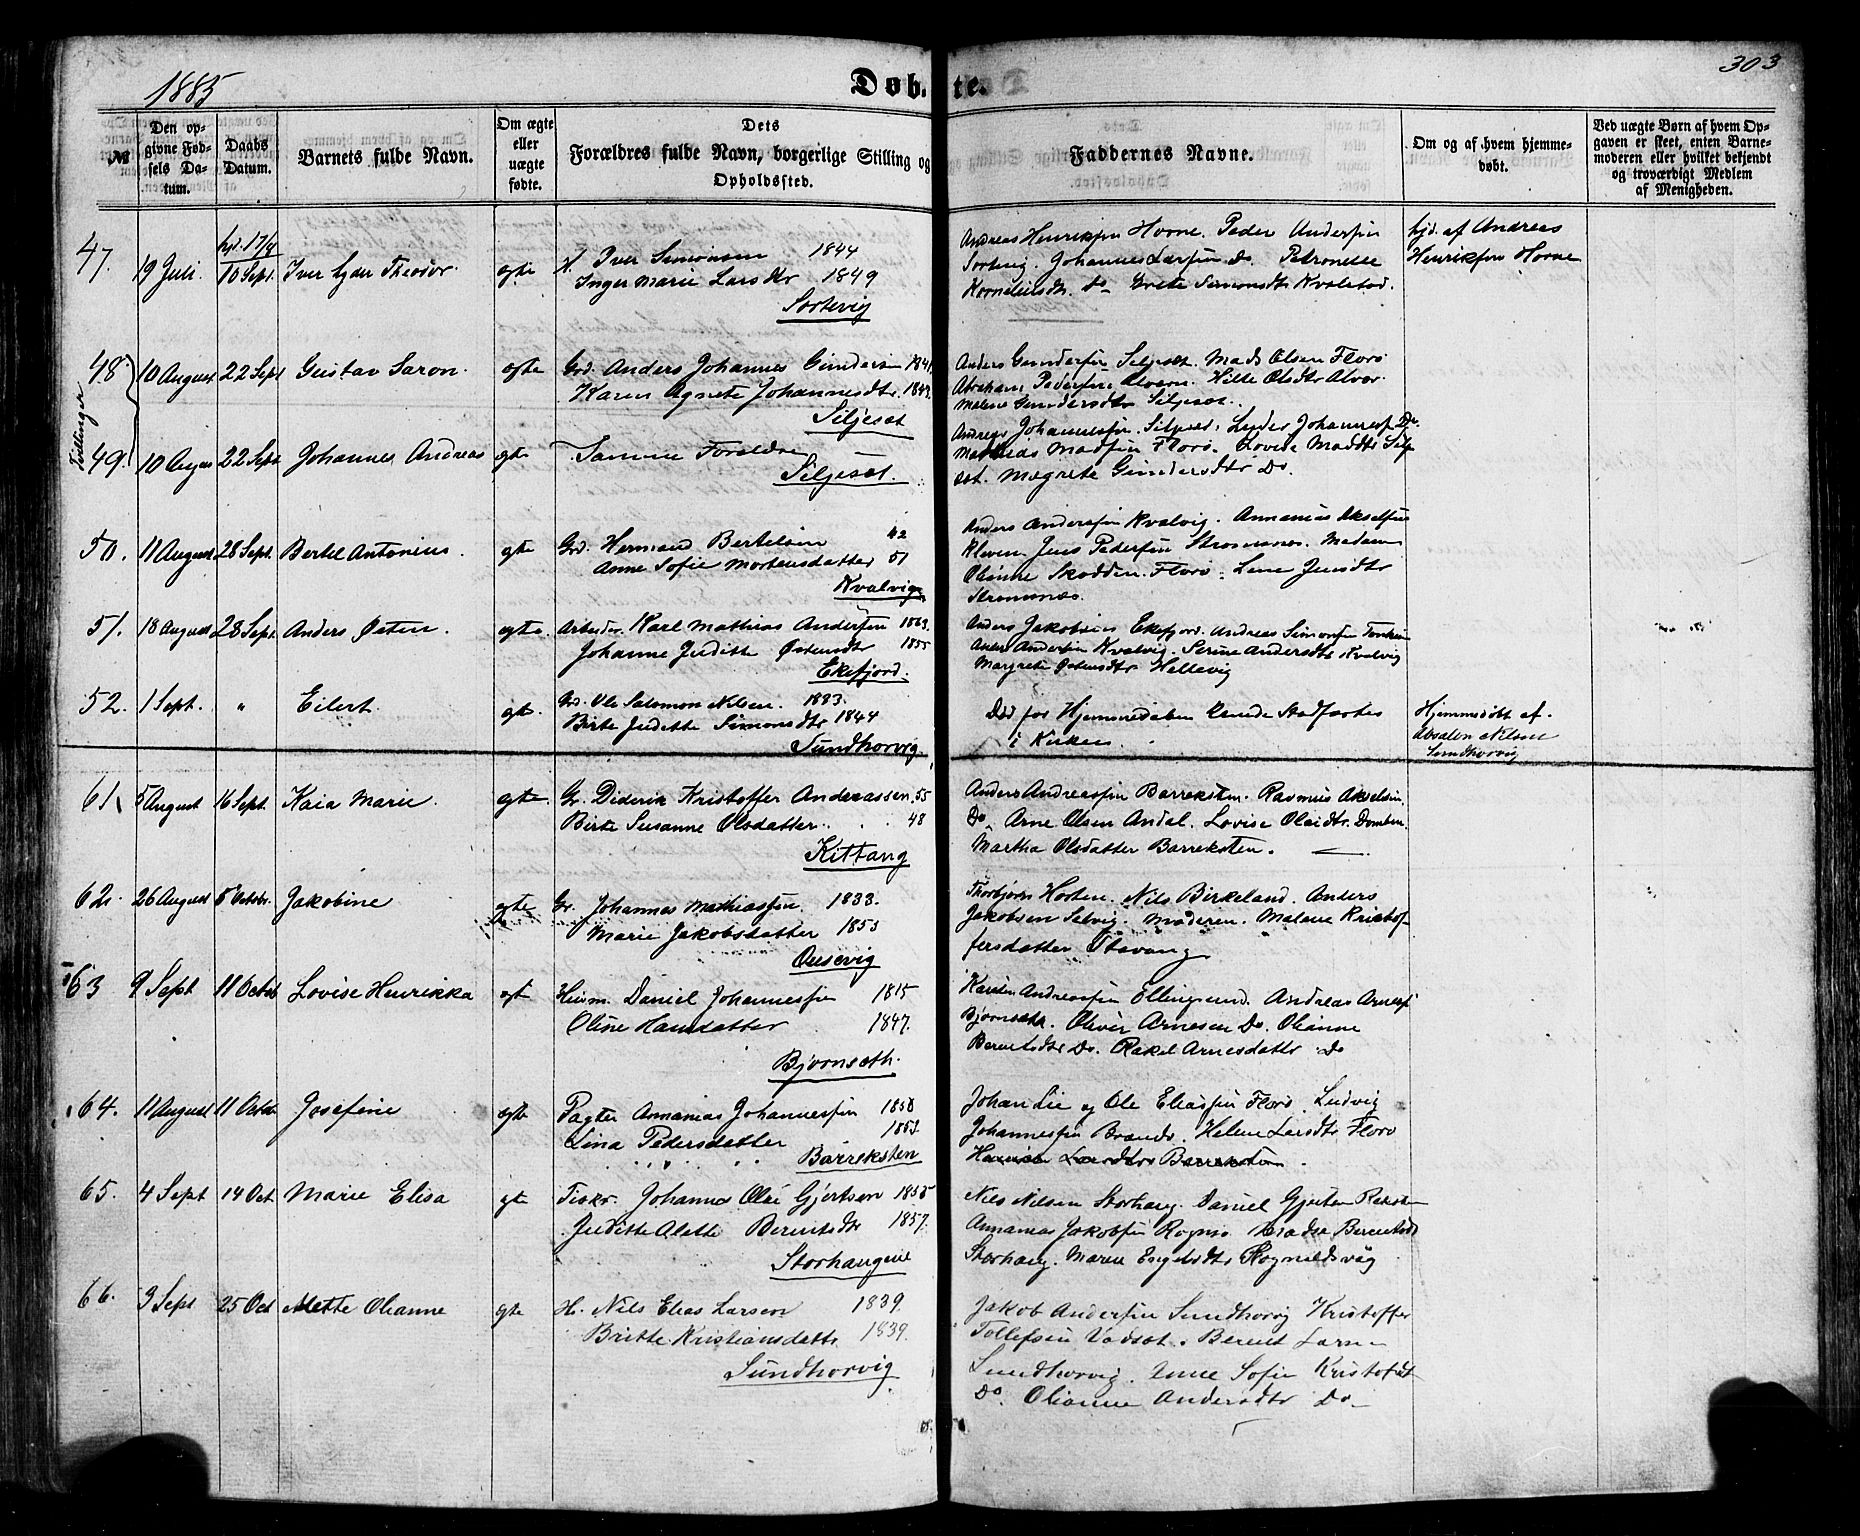 1885
Døbte.
303
№
Den opgivne Fødsels Datum.
Daabs Datum.
Barnets fulde Navn.
Om ægte eller uægte fødte.
Dets Forældres fulde Navn, borgerlige Stilling og Opholdssted.
Faddernes Navne.
Om og af hvem hjemmedøbt.
Ved uægte Børn af hvem Opgaven er skeet, enten Barnemoderen eller hvilket bekjendt og troværdigt Medlem af Menigheden.
47. 19 Juli. hjd. 17/8 10 Sept. Iver Theodor. ægte
Iver Simonsen 1844
Inger Marie Larsdtr 1849
Sortevig
Andreas Henriksen Hovne. Peder Andersen
Sortevig. Johannes Larsen Do. Petronelle
Kornelilsdtr. Do Grete Simonsdtr Kvalstad.
hjd. af Andreas
Henriksen Hovne
Tvillinger
48. 10 August 22 Sept Gustav Saron. ægte
Grd. Anders Johannes Gundersen 1841
Karen Agnete Johannesdtr. 1843
Siljesæt
Anders Gundersen Siljesæt. Mads Olsen Florø
Abraham Pedersen Alvoren. Olsdtr Alvor.
Malene Gundersdtr Siljesæt.
49. 10 August 22 Sept Johannes Andreas ægte
Samme Forældre
Siljesæt.
Andreas Johannessen Siljesæt. Johannes. Do.
Mathias Madsen Florø. Lovise Madsdtr Silje
sæt. Magrete Gundersdtr Do.
50. 11 August 28 Sept. Bertel Antonius. ægte
Grd. Hermand Bertelsen 42
Anne Sofie Mortensdatter 51
Kvalvig
Anders Andersen Kvalvig. Annanias Akselsen
Kleven. Jens Pedersen Strømsnæs. Madam
Olianne Skodden. Florø. Lene Jensdtr
Strømsnæs.
51. 18 August 28 Sept. Anders Østen. ægte.
Arbeder. Karl Mathias Andersen
Johanne Juditte Østensdtr 1855
Ekefjord.
Anders Jakobsen Ekefjord. Andreas Simonsen
Andersen Kvalvig. Serine Andersdtr Kvalvig
Margrete Østensdtr Hellevig
52. 1 Sept. " Eilert. ægte.
Grd. Ole Salomon Nilsen. 1833.
Birte Juditte Simonsdtr 1844
Sundhorvig.
Død før Hjemmedåben kunde Stadfæstes
i Kirken.
Hjemmedøbt af.
Absalon Nilsen
Sundhorvig
61. 5 August 16 Sept. Kaia Marie. ægte.
Gr. Diderik Kristoffer Andreassen. 55
Birte Susanne Olsdatter. 48
Kittang
Anders Andreassen Barreksten. Rasmus Akselsen.
Do. Arne Olsen Andal. Lovise Olaidtr. Domben.
Martha Olsdatter Barreksten.
62. 26 August 5 Octobr. Jakobine ægte
Gr. Johannes Mathiassen 1833.
Marie Jakobsdatter 1853
Ausevig
Thorbjørn Hosten. Nils Birkeland. Anders
Jakobsen Selvig. Moderen. Malene Kristof-
fersdatter Stavang
63 9 Sept 11 Octob Lovise Henrikka ægt
Huusm. Daniel Johannessen 1815
Oline Hansdatter 1847.
Bjørnsæth.
Karsten Andreassen Ellingsund. Andreas Arnes
Bjørnsæth. Oliver Arnesen Do. Olianne
Berentsdtr Do. Rakel Arnesdatter Do
64. 11 August 11 Octob Josefine ægte
Pagter Annanias Johannessen 1858
Lina Pedersdatter 1853
Barreksten
Johan Lie og Ole Eliassen Florø. Ludvig
Johannessen Brandsø. Helene Larsdtr Florø
Larsdtr Barreksten.
65. 4 Sept 14 Oct Marie Elisa ægte
Fisker. Johannes Olai Gjertsen 1855
Juditte Alette Berentsdtr 1857.
Storhaugene
Nils Nilsen Storhaug. Daniel Gjertsen Raksten
Annanias Jakobsen Rognsø. Berentsdt
Storhaug. Maren Engelsdtr Rognaldsvåg
66. 9 Sept 25 Oct Mette Olianne ægte
H. Nils Elias Larsen 1839.
Britte Kristiansdatter 1839.
Sundhorvig
Jakob Andersen Sundhorvig Kristoffer
Tollefsen Vadsæt. Berent Larsen
Sundhorvig. Anne Sofie Kristofsdt
Do. Olianne Andersdtr Do